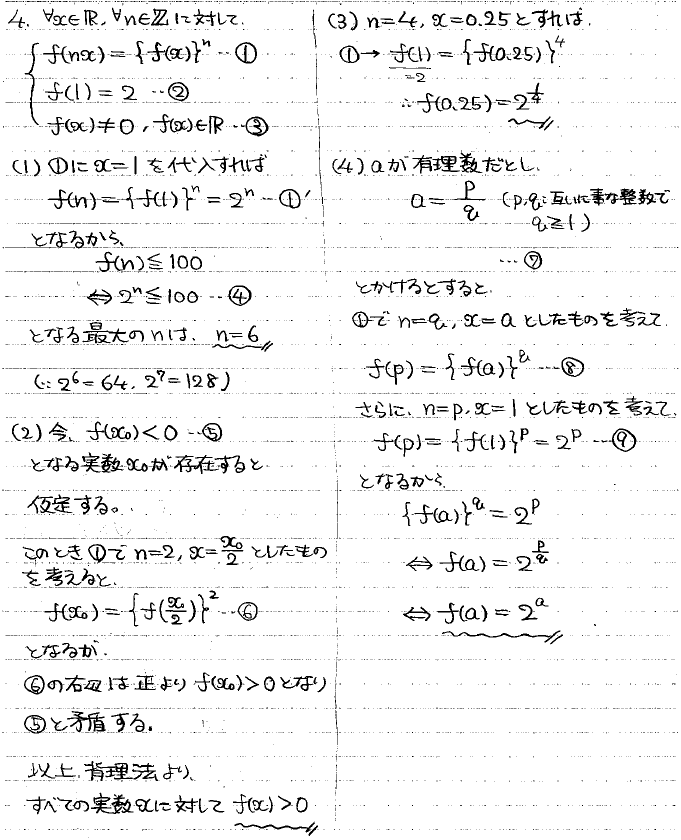 4. ∀x∈ℝ, ∀n∈ℤに対して.
f(nx)={f(x)}^n …①
f(1)=2 …②
f(x)≠0, f(x)∈ℝ …③
(1) ①にx=1を代入すれば
f(n)={f(1)}^n=2^n …①'
となるから、
f(n)≦100
⇔2^n≦100 …④
となる最大のnは、n=6
(∵2^6=64, 2^7=128)
(2) 今、f(x₀)<0 …⑤
となる実数x₀が存在すると
仮定する。
このとき①でn=2, x=x₀/2としたもの
を考えると、
f(x₀)={f(x₀/2)}^2 …⑥
となるが.
⑥の右辺は正よりf(x₀)>0となり
⑤と矛盾する.
以上、背理法より、
すべての実数xに対してf(x)>0
(3) n=4, x=0.25とすれば.
①→f(1)={f(0.25)}^4
=2
∴f(0.25)=2^(1/4)
(4) aが有理数だとし、
a=p/q (p,q:互いに素な整数で
q≧1)
…⑦
とかけるとすると.
①でn=q, x=aとしたものを考えて.
f(p)={f(a)}^q …⑧
さらに、n=p, x=1としたものを考えて、
f(p)={f(1)}^p=2^p …⑨
となるから
{f(a)}^q=2^p
⇔f(a)=2^(p/q)
⇔f(a)=2^a